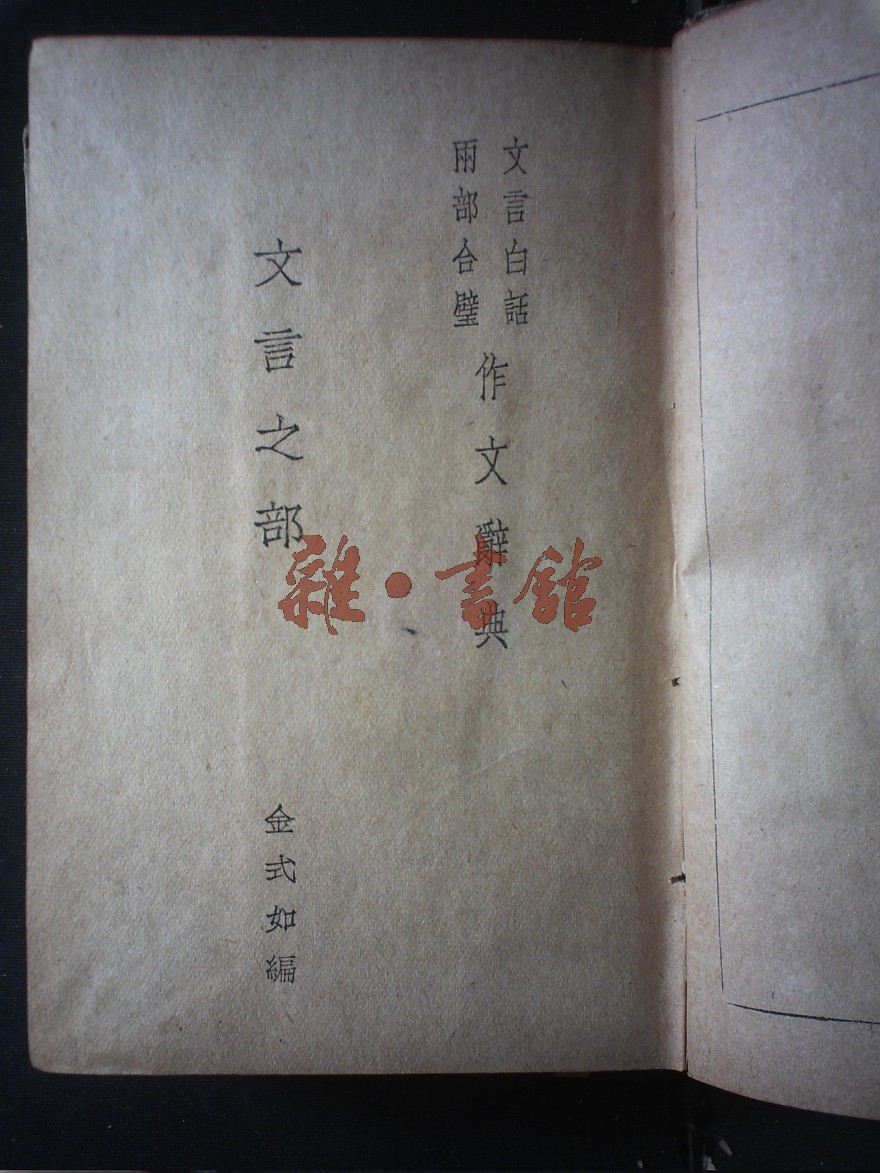 文言白話
兩部合璧
作文辭典
文言之部
金式如編
雜·書館